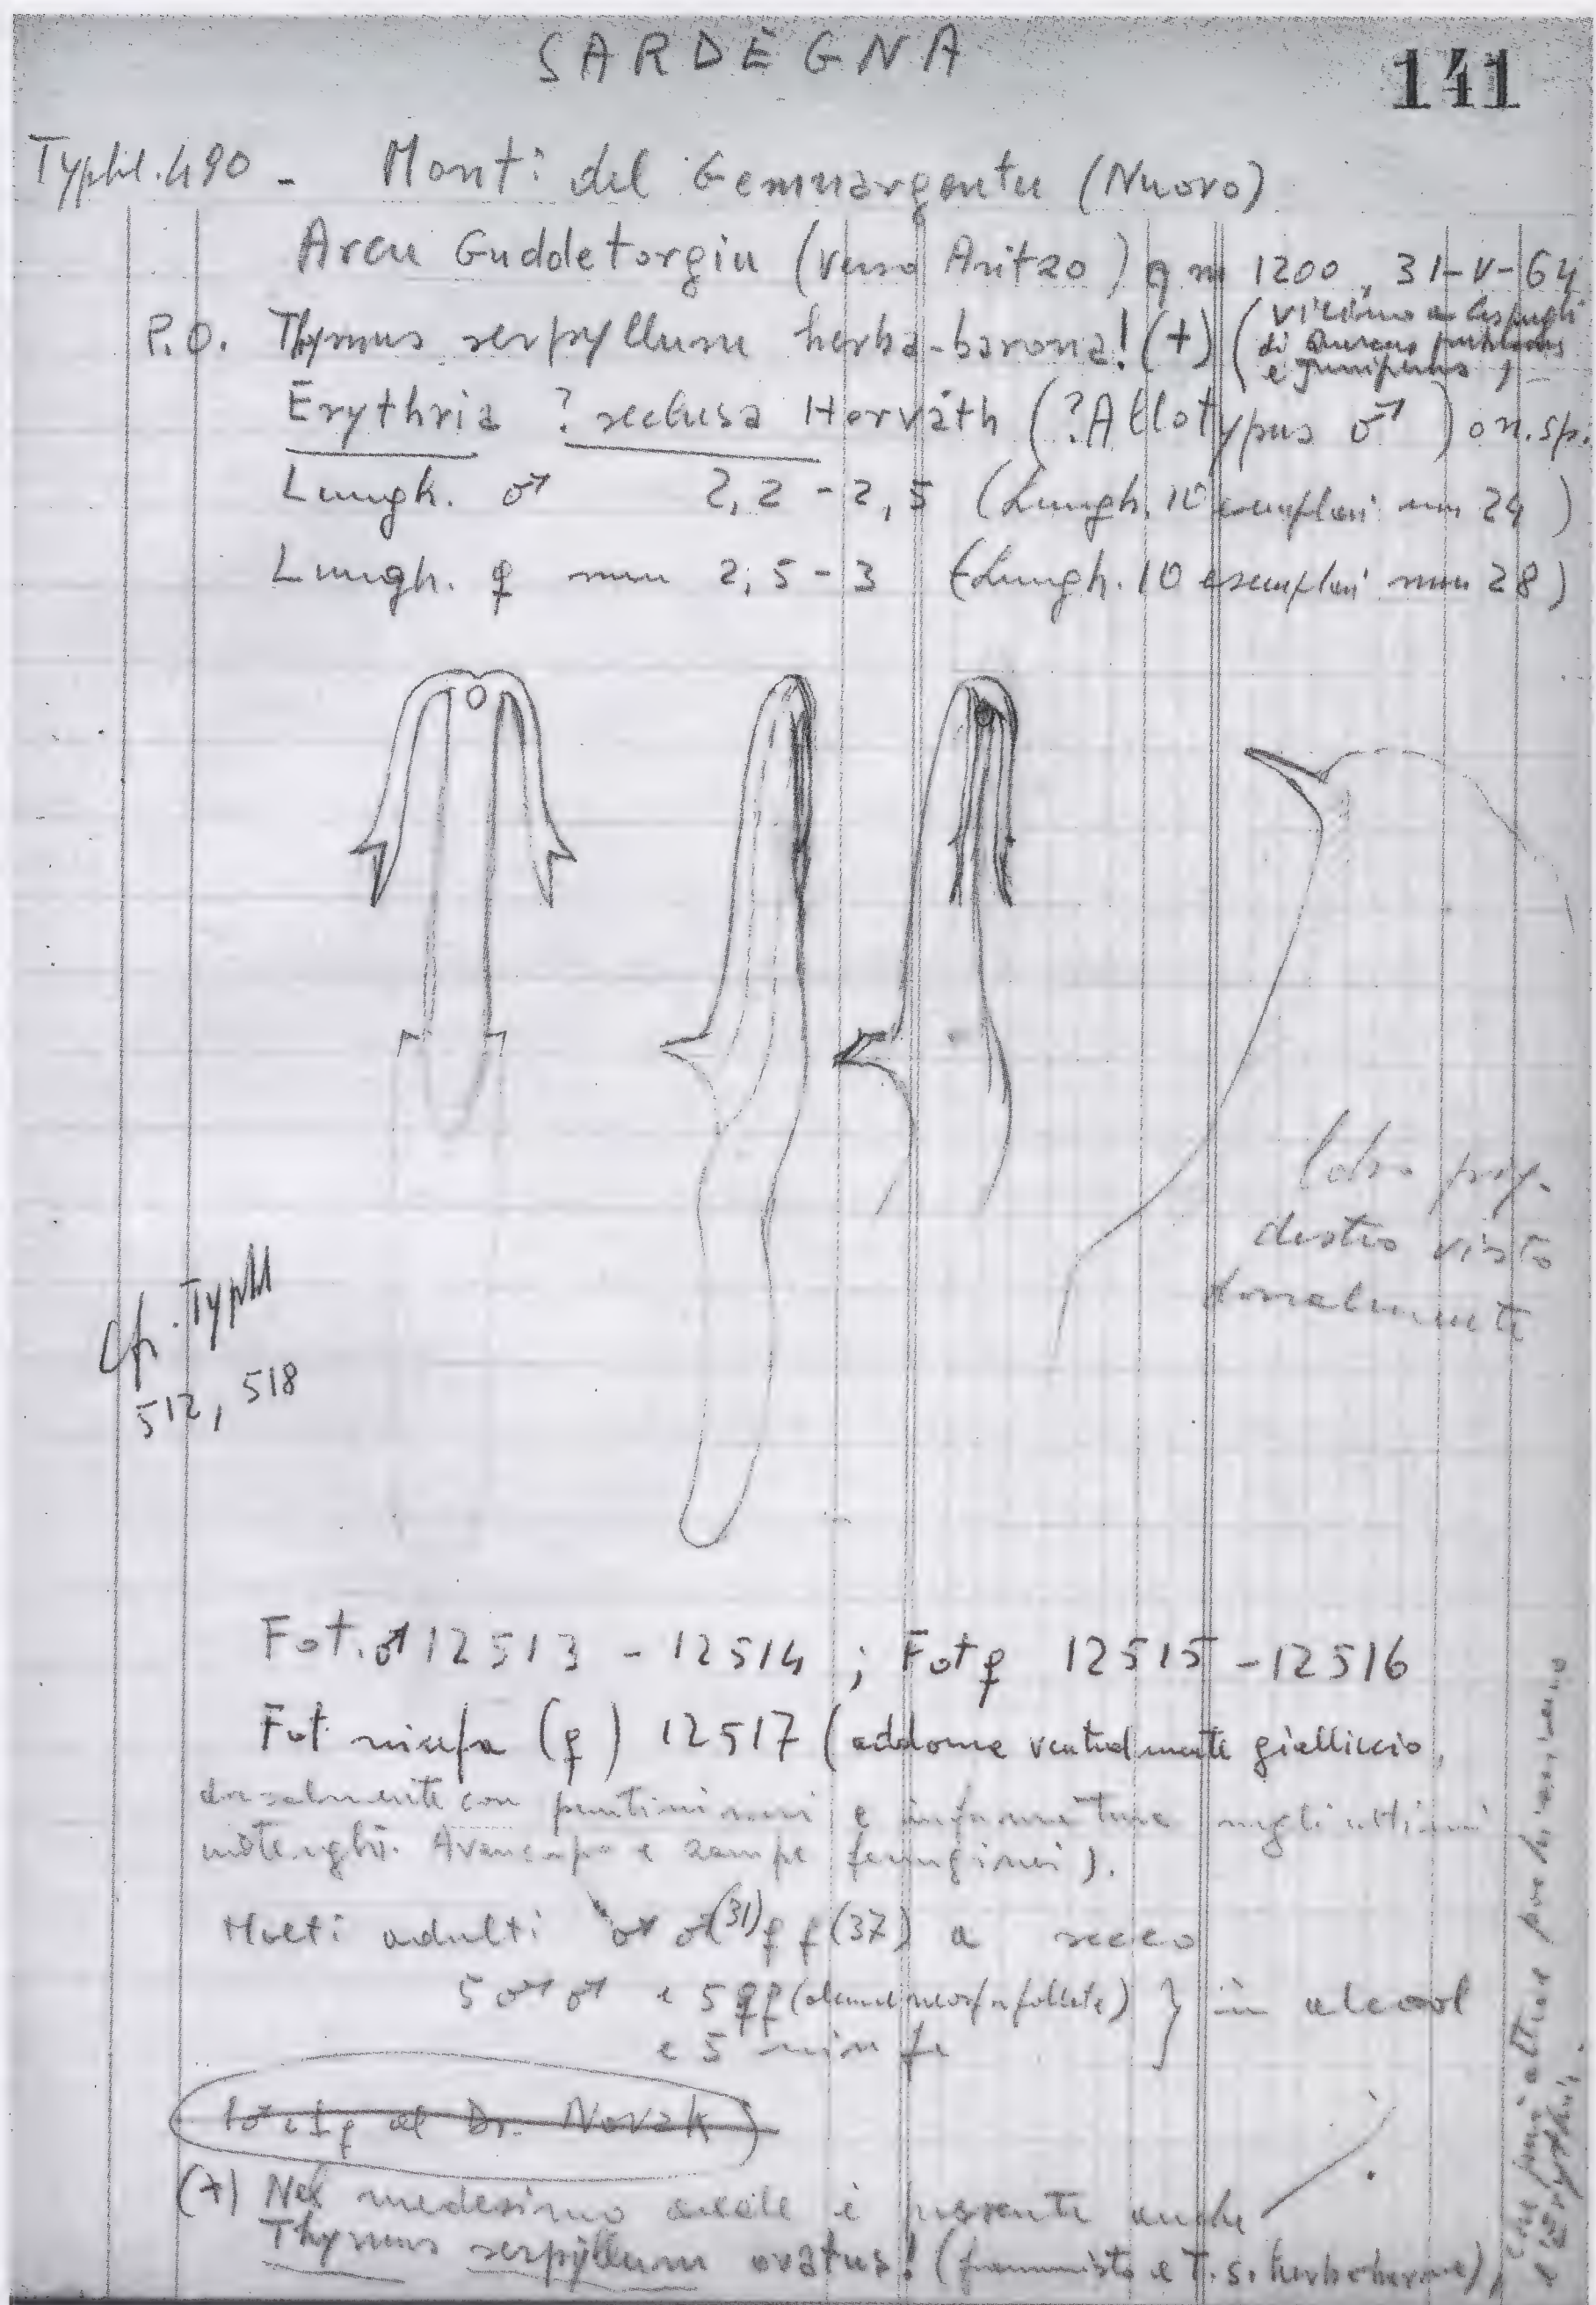 SARDEGNA
141
Typhl. 490 - Monti del Gennargentu (Nuoro)
Arcu Guddetorgiu (verso Aritzo) q m 1200, 31-V-64
P.O. Thymus serpyllum herba-barona! (+) (vicino a cespugli
di Quercus pubescens
e Juniperus)
Erythria ? seclusa Horváth (?Allotypus ♂) o n.sp.
Lungh. ♂ 2,2 - 2,5 (Lungh. 10 esemplari mm 24)
Lungh. ♀ mm 2,5 - 3 (Lungh. 10 esemplari mm 28)
Lobo pig.
destro visto
dorsalmente
Cfr. Typhl
512, 518
Fot. ♂ 12513 - 12514 ; Fot ♀ 12515 - 12516
Fot ninfa (♀) 12517 (addome ventralmente gialliccio,
dorsalmente con puntini neri e infumature negli ultimi
uroterghi. Avancorpo e zampe ferruginei).
Molti adulti ♂♂ (31) ♀♀ (37) a secco
5 ♂♂ e 5 ♀♀ (alcune neosfarfallate) } in alcool
e 5 ninfe
1♂ e 1♀ al Dr. Novak
(+) Nel medesimo areale è presente anche
Thymus serpyllum ovatus! (frammisto a T. s. herba barona)